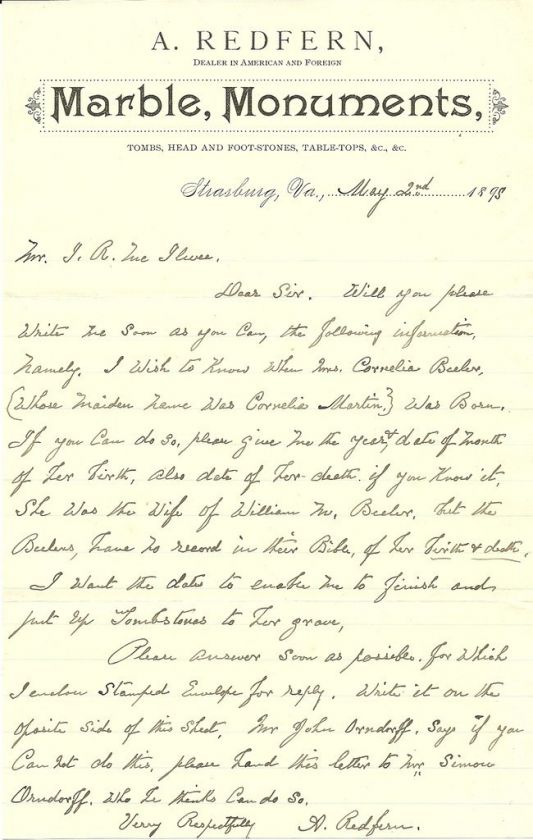 A. REDFERN,
DEALER IN AMERICAN AND FOREIGN
Marble, Monuments,
TOMBS, HEAD AND FOOT-STONES, TABLE-TOPS, &C., &C.
Strasburg, Va., May 2nd 1898
Mr. J. R. Mc Ilwee.
Dear Sir. Will you please
Write me soon as you can, the following information,
namely. I Wish to Know When Mrs. Cornelia Beeler,
(Whose maiden name Was Cornelia Martin,) Was Born.
If you Can do so, please give me the year, & date of month
of her birth, also date of her death. if you Know it,
She Was the Wife of William M. Beeler, but the
Beelers, have no record in their Bible, of her birth & death.
I Want the date to enable me to finish and
put up Tombstones to her grave,
Please answer soon as possible. for Which
I enclose Stamped Envelope for reply. Write it on the
oposite Side of this Sheet, Mr John Orndorff, Says if you
Can not do this, please hand this letter to Mr, Simon
Orndorff. Who he thinks Can do So.
Verry Respectfully A. Redfern.